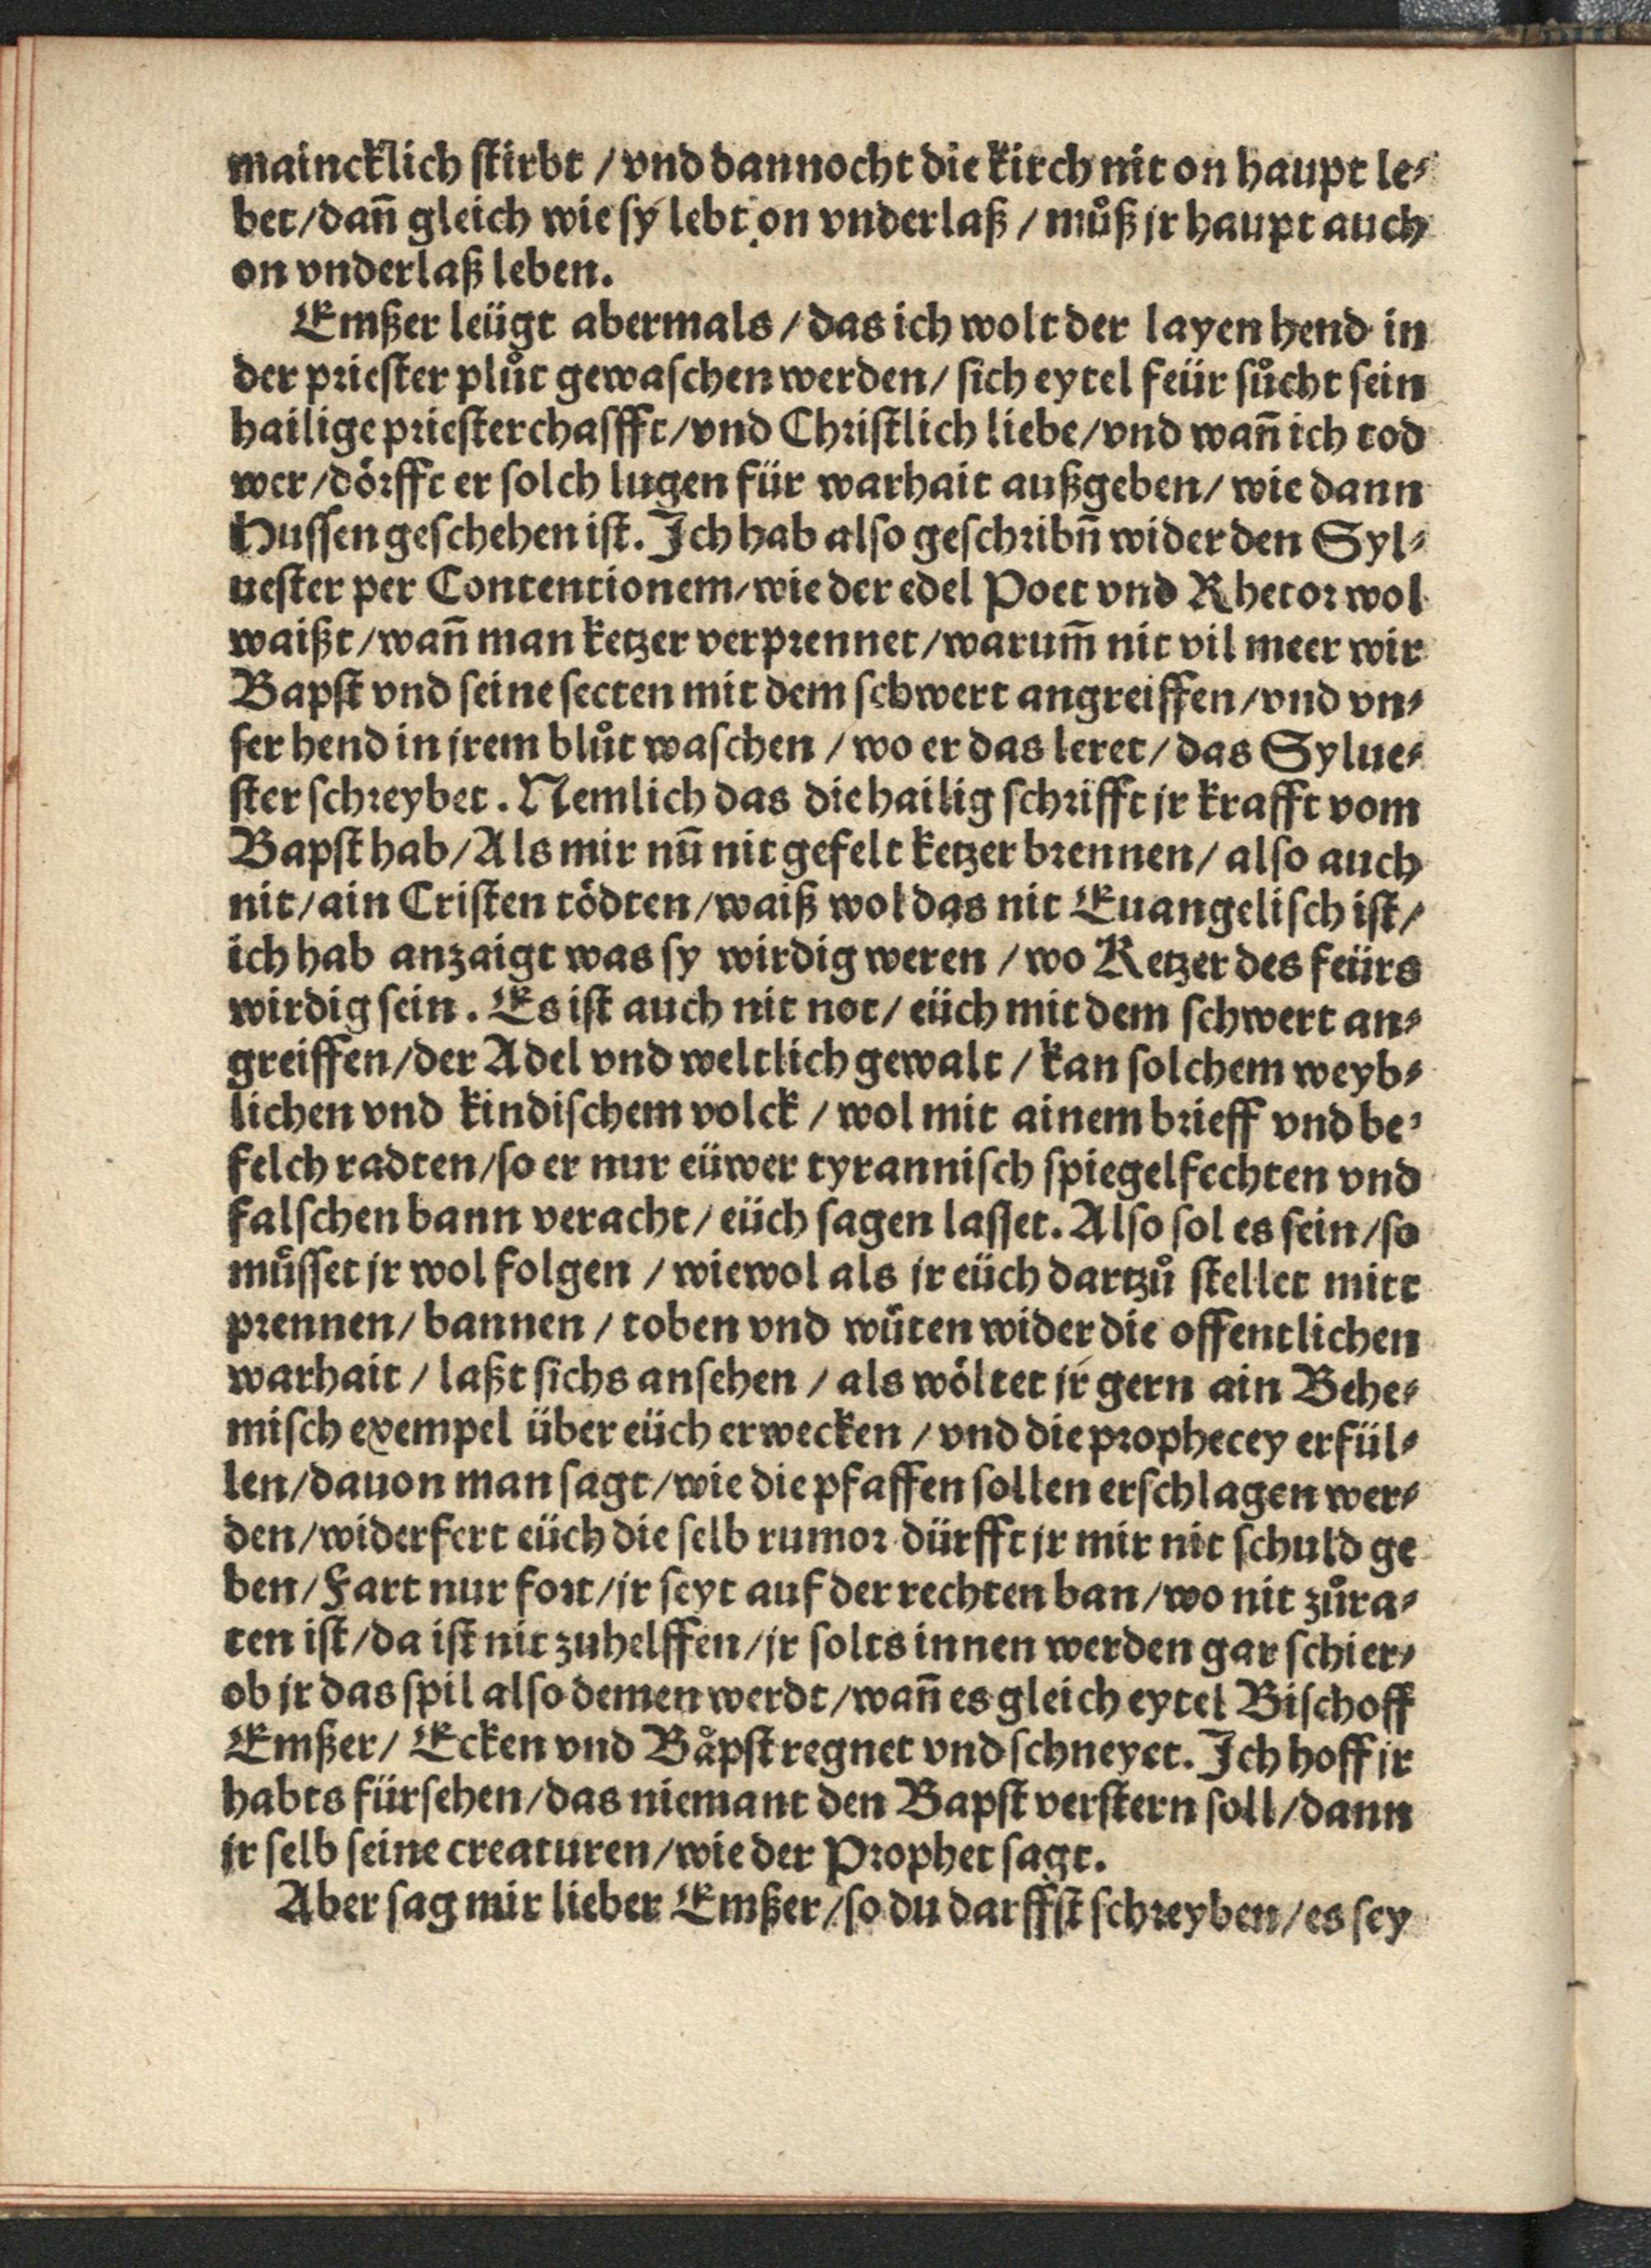 maincklich ſtirbt / vnd dannocht die kirch nit on haupt le⸗
bet / dañ gleich wie ſy lebt on vnderlaß / muͦß jr haupt auch
on vnderlaß leben.
Emßer leügt abermals / das ich wolt der layen hend in
der prieſter pluͦt gewaſchen werden / ſich eytel feür ſuͦcht ſein
hailige prieſterchaſfft / vnd Chriſtlich liebe / vnd wañ ich tod
wer / doͤrfft er ſolch lugen für warhait außgeben / wie dann
Huſſen geſchehen iſt. Ich hab alſo geſchribñ wider den Syl⸗
ueſter per Contentionem / wie der edel Poet vnd Rhetor wol
waißt / wañ man ketzer verprennet / warum̃ nit vil meer wir
Bapſt vnd ſeine ſecten mit dem ſchwert angreiffen / vnd vn⸗
ſer hend in jrem bluͦt waſchen / wo er das leret / das Sylue⸗
ſter ſchreybet. Nemlich das die hailig ſchrifft jr krafft vom
Bapſt hab / Als mir nũ nit gefelt ketzer brennen / alſo auch
nit / ain Criſten toͤdten / waiß wol das nit Euangeliſch iſt /
ich hab anzaigt was ſy wirdig weren / wo Ketzer des feürs
wirdig ſein. Es iſt auch nit not / eüch mit dem ſchwert an⸗
greiffen / der Adel vnd weltlich gewalt / kan ſolchem weyb⸗
lichen vnd kindiſchem volck / wol mit ainem brieff vnd be⸗
felch radten / ſo er nur eüwer tyranniſch ſpiegelfechten vnd
falſchen bann veracht / eüch ſagen laſſet. Alſo ſol es ſein / ſo
muͤſſet jr wol folgen / wiewol als jr eüch dartzuͦ ſtellet mitt
prennen / bannen / toben vnd wuͤten wider die offentlichen
warhait / laßt ſichs anſehen / als woͤltet jr gern ain Behe⸗
miſch exempel über eüch erwecken / vnd die prophecey erfül⸗
len / dauon man ſagt / wie die pfaffen ſollen erſchlagen wer⸗
den / widerfert eüch die ſelb rumor dürfft jr mir nit ſchuld ge
ben / Fart nur fort / jr ſeyt auf der rechten ban / wo nit zuͦra⸗
ten iſt / da iſt nit zuhelffen / jr ſolts innen werden gar ſchier /
ob jr das ſpil alſo demen werdt / wañ es gleich eytel Biſchoff
Emßer / Ecken vnd Baͤpſt regnet vnd ſchneyet. Ich hoff jr
habts fürſehen / das niemant den Bapſt verſtern ſoll / dann
jr ſelb ſeine creaturen / wie der Prophet ſagt.
Aber ſag mir lieber Emßer / ſo du darffſt ſchreyben / es ſey